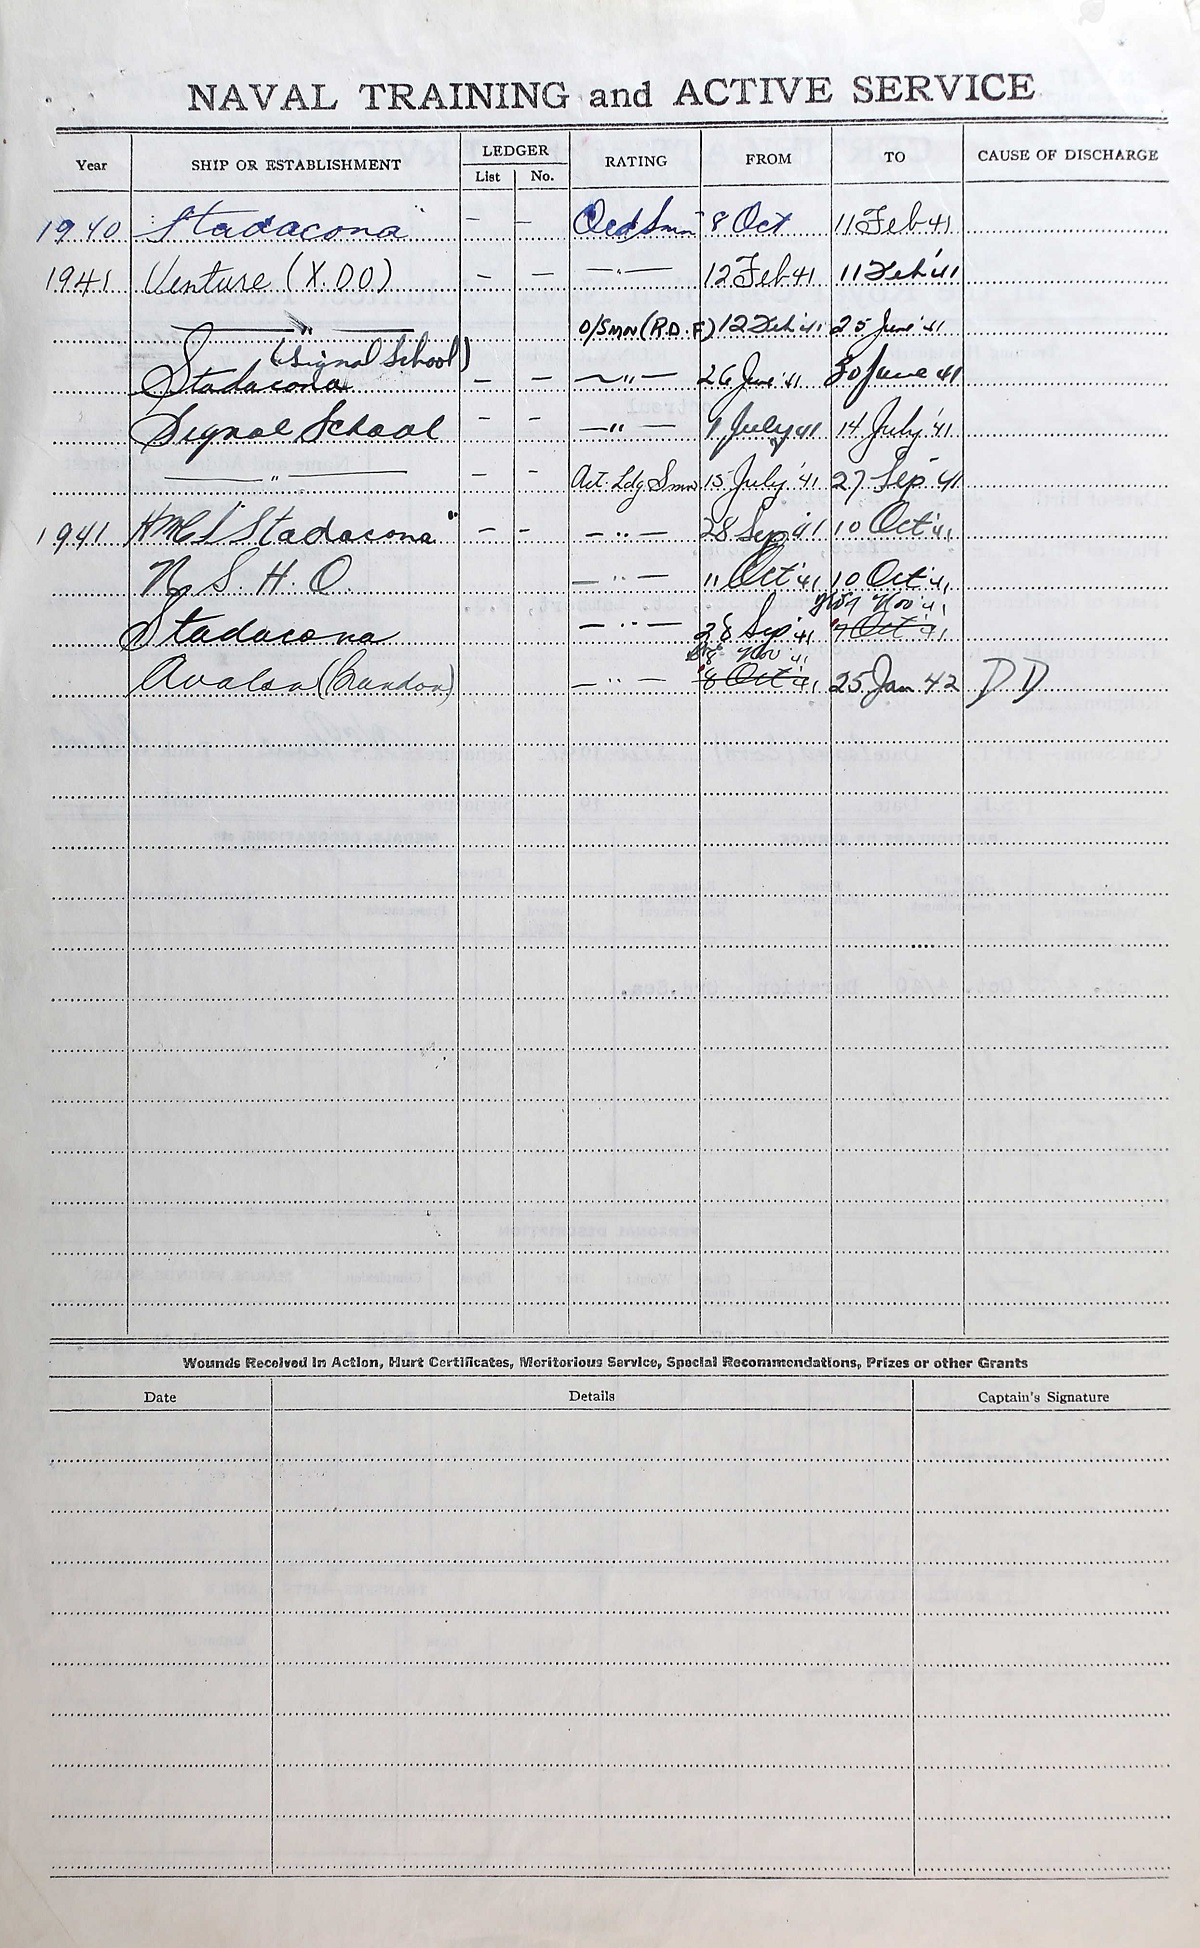 NAVAL TRAINING and ACTIVE SERVICE
Year SHIP OR ESTABLISHMENT LEDGER List No. RATING FROM TO CAUSE OF DISCHARGE
1940 "Stadacona" — — Ord Smn 8 Oct 11 Feb 41
1941 Venture (X.DO) — — —"— 12 Feb 41 11 Feb '41
—"— O/SMN (R.D.F) 12 Feb '41 25 June '41
Stadacona (Signal School) — — —"— 26 June '41 30 June 41
Signal School — — —"— 1 July 41 14 July '41
—"— — — Act. Ldg Smn 15 July '41 27 Sep '41
1941 HMCS "Stadacona" — — —"— 28 Sep '41 10 Oct '41
N. S. H. Q. —"— 11 Oct '41 10 Oct '41
7 Nov '41
Stadacona —"— 28 Sep '41 7 Oct '41
8 Nov '41
Avalon —"— 8 Oct '41 25 Jan 42 DD
Wounds Received in Action, Hurt Certificates, Meritorious Service, Special Recommendations, Prizes or other Grants
Date Details Captain's Signature